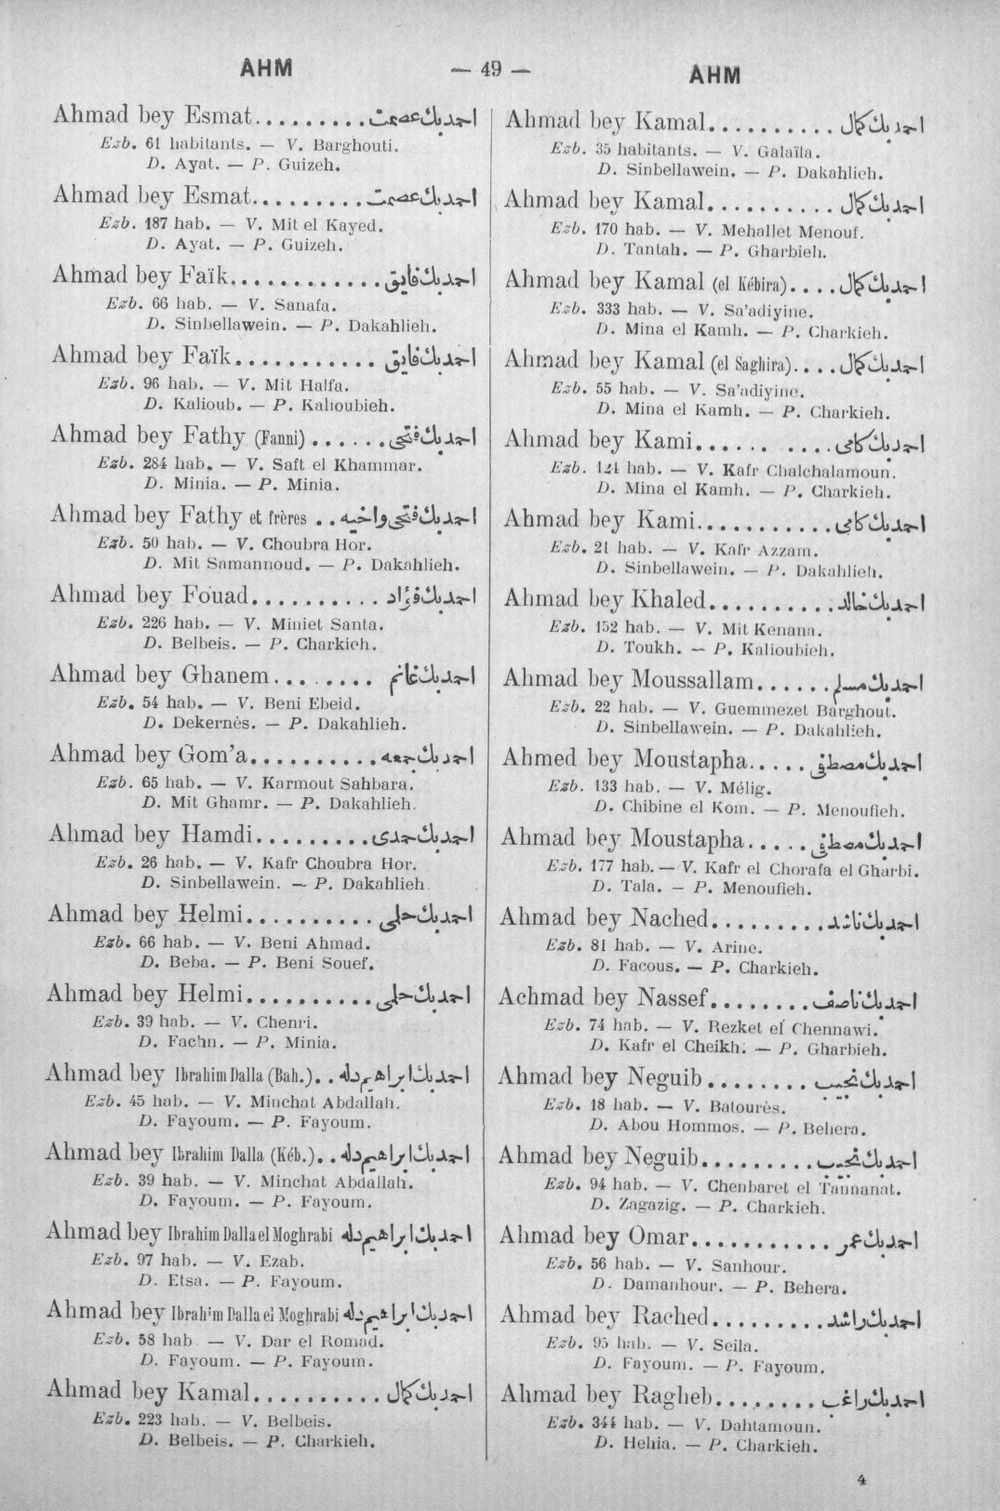 AHM — 49 — AHM
Ahmad bey Esmat.........احمد بك عصمت
Ezb. 61 habitants. — V. Barghouti.
D. Ayat. — P. Guizeh.
Ahmad bey Esmat.........احمد بك عصمت
Ezb. 187 hab. — V. Mit el Kayed.
D. Ayat. — P. Guizeh.
Ahmad bey Faïk............احمد بك فايق
Ezb. 66 hab. — V. Sanafa.
D. Sinbellawein. — P. Dakahlieh.
Ahmad bey Faïk............احمد بك فايق
Ezb. 96 hab. — V. Mit Halfa.
D. Kalioub. — P. Kalioubieh.
Ahmad bey Fathy (Fanni) ......احمد بك فتحى
Ezb. 284 hab. — V. Saft el Khammar.
D. Minia. — P. Minia.
Ahmad bey Fathy et frères ..احمد بك فتحى واخيه
Ezb. 50 hab. — V. Choubra Hor.
D. Mit Samannoud. — P. Dakahlieh.
Ahmad bey Fouad..........احمد بك فؤاد
Ezb. 226 hab. — V. Miniet Santa.
D. Belbeis. — P. Charkieh.
Ahmad bey Ghanem........احمد بك غانم
Ezb. 54 hab. — V. Beni Ebeid.
D. Dekernès. — P. Dakahlieh.
Ahmad bey Gom'a..........احمد بك جمعه
Ezb. 65 hab. — V. Karmout Sahbara.
D. Mit Ghamr. — P. Dakahlieh.
Ahmad bey Hamdi.........احمد بك حمدى
Ezb. 26 hab. — V. Kafr Choubra Hor.
D. Sinbellawein. — P. Dakahlieh.
Ahmad bey Helmi..........احمد بك حلمى
Ezb. 66 hab. — V. Beni Ahmad.
D. Beba. — P. Beni Souef.
Ahmad bey Helmi..........احمد بك حلمى
Ezb. 39 hab. — V. Chenri.
D. Fachn. — P. Minia.
Ahmad bey Ibrahim Dalla (Bah.)..احمد بك ابراهيم دله
Ezb. 45 hab. — V. Minchat Abdallah.
D. Fayoum. — P. Fayoum.
Ahmad bey Ibrahim Dalla (Kéb.)..احمد بك ابراهيم دله
Ezb. 39 hab. — V. Minchat Abdallah.
D. Fayoum. — P. Fayoum.
Ahmad bey Ibrahim Dalla el Moghrabi احمد بك ابراهيم دله
Ezb. 97 hab. — V. Ezab.
D. Etsa. — P. Fayoum.
Ahmad bey Ibrahim Dalla el Moghrabi احمد بك ابراهيم دله
Ezb. 58 hab — V. Dar el Romad.
D. Fayoum. — P. Fayoum.
Ahmad bey Kamal..........احمد بك كمال
Ezb. 223 hab. — V. Belbeis.
D. Belbeis. — P. Charkieh.
Ahmad bey Kamal..........احمد بك كمال
Ezb. 35 habitants. — V. Galaïla.
D. Sinbellawein. — P. Dakahlieh.
Ahmad bey Kamal..........احمد بك كمال
Ezb. 170 hab. — V. Mehallet Menouf.
D. Tantah. — P. Gharbieh.
Ahmad bey Kamal (el Kébira)....احمد بك كمال
Ezb. 333 hab. — V. Sa'adiyine.
D. Mina el Kamh. — P. Charkieh.
Ahmad bey Kamal (el Saghira)....احمد بك كمال
Ezb. 55 hab. — V. Sa'adiyine.
D. Mina el Kamh. — P. Charkieh.
Ahmad bey Kami..........احمد بك كامى
Ezb. 121 hab. — V. Kafr Chalchalamoun.
D. Mina el Kamh. — P. Charkieh.
Ahmad bey Kami...........احمد بك كامى
Ezb. 21 hab. — V. Kafr Azzam.
D. Sinbellawein. — P. Dakahlieh.
Ahmad bey Khaled..........احمد بك خالد
Ezb. 152 hab. — V. Mit Kenana.
D. Toukh. — P. Kalioubieh.
Ahmad bey Moussallam......احمد بك مسلم
Ezb. 22 hab. — V. Guemmezet Barghout.
D. Sinbellawein. — P. Dakahlieh.
Ahmed bey Moustapha.....احمد بك مصطفى
Ezb. 133 hab. — V. Mélig.
D. Chibine el Kom. — P. Menoufieh.
Ahmad bey Moustapha.....احمد بك مصطفى
Ezb. 177 hab. — V. Kafr el Chorafa el Gharbi.
D. Tala. — P. Menoufieh.
Ahmad bey Nached.........احمد بك ناشد
Ezb. 81 hab. — V. Arine.
D. Facous. — P. Charkieh.
Achmad bey Nassef........احمد بك ناصف
Ezb. 74 hab. — V. Rezket el Chennawi.
D. Kafr el Cheikh. — P. Gharbieh.
Ahmad bey Neguib........احمد بك نجيب
Ezb. 18 hab. — V. Batourès.
D. Abou Hommos. — P. Behera.
Ahmad bey Neguib.........احمد بك نجيب
Ezb. 94 hab. — V. Chenbaret el Tannanat.
D. Zagazig. — P. Charkieh.
Ahmad bey Omar...........احمد بك عمر
Ezb. 56 hab. — V. Sanhour.
D. Damanhour. — P. Behera.
Ahmad bey Rached.........احمد بك راشد
Ezb. 95 hab. — V. Seila.
D. Fayoum. — P. Fayoum.
Ahmad bey Ragheb.........احمد بك راغب
Ezb. 344 hab. — V. Dahtamoun.
D. Hehia. — P. Charkieh.
4